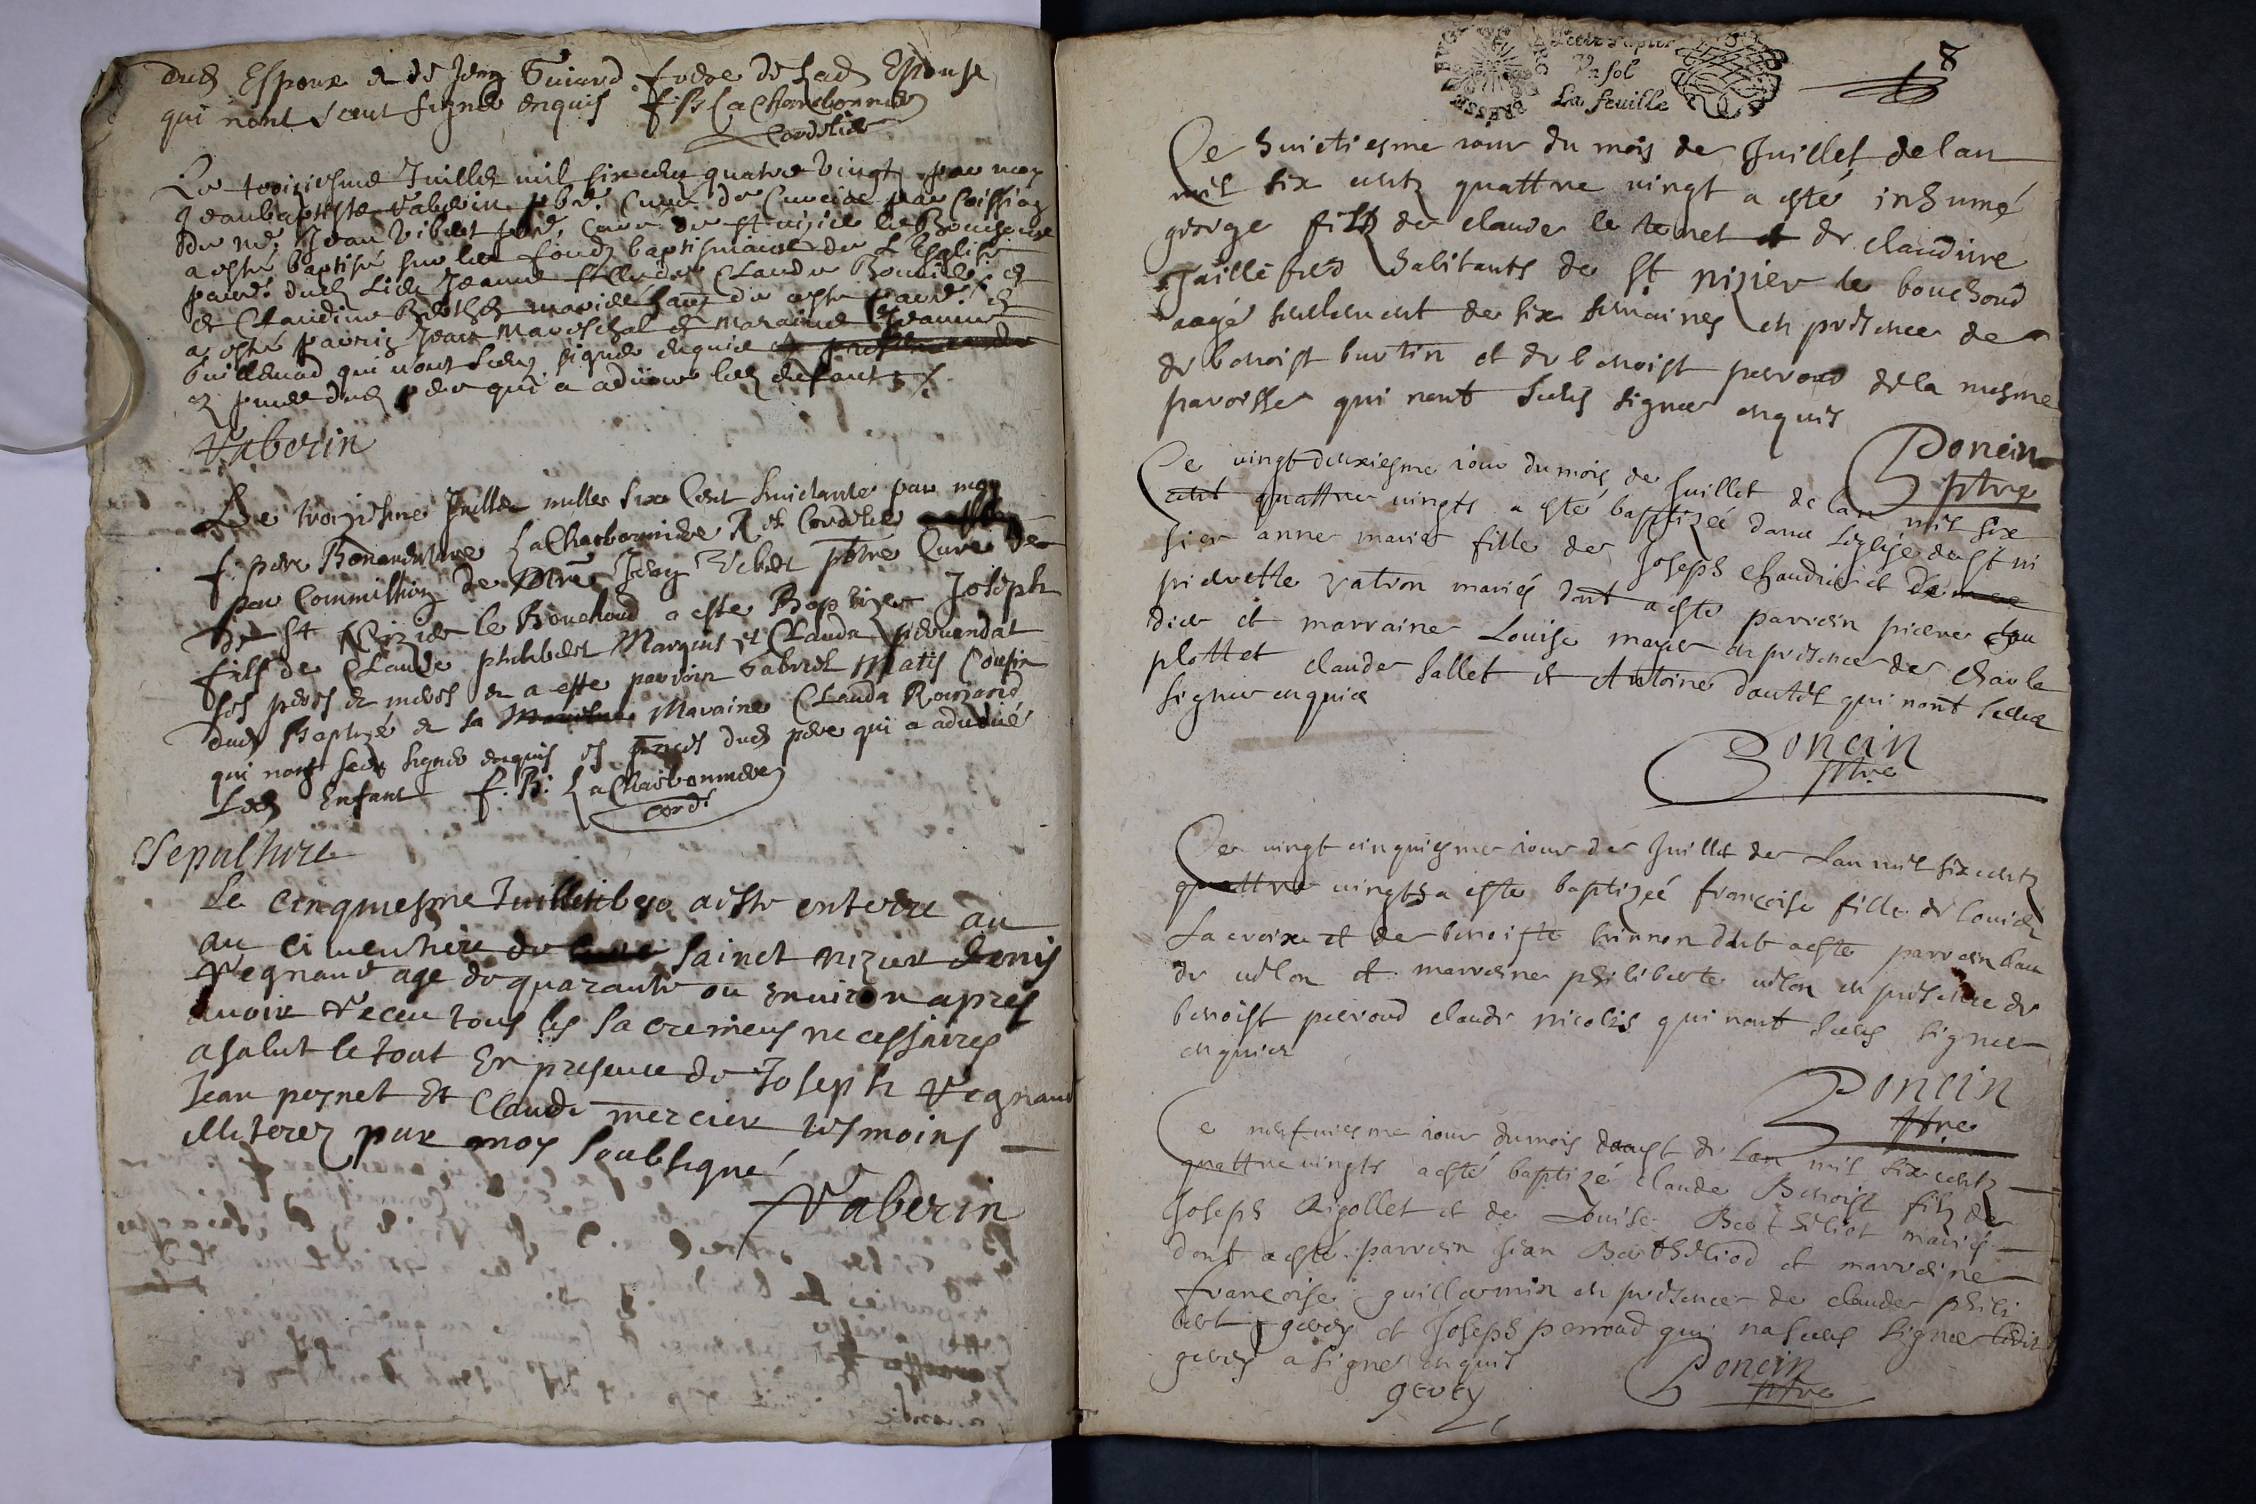 dud Espoux et de Jean Guiard frere de lad Espouse
qui nont sceut signé enquis f. B. LaCharbonnier
Cordelier
Le troisiesme Juillet mil six cens quatre vingt par moy
Jeanbaptiste Vaberin pbre Curé de par
de Me Jean Vibert pbre Curé de st nizier le Bouchoud
a esté baptisé sur les fonds baptismaux de L'Eglise
parr. dud lieu Jeanne fille de Claude et
et Claudine mariés de ceste parr. et
a esté parrin Jean Mareschal et Maraine Jeanne
Guillemad qui nont sceu signer enquis
pnce dud pere qui a advoué led enfant ./.
Vaberin
Le troiziesme Juillet milles six Cent huictante par moy
f. pere Bonaventure LaCharbonniere R. et Cordelier
par Commission de Mre Jean Vibert pbtre Curé de
de St Nizier le Bouchoud a esté Baptizer Joseph
fils de Claude philibert Marquis et Clauda perrendat
ses peres et meres et a esté parrin Gabriel Matis Cousin
dud Baptizé et la Maraine Clauda Roujand
qui nont sceu signer enquis es pnces dud pere qui a advoué
Led Enfant f. B. LaCharbonniere
cord.
Sepulture
Le cinquiesme Juillet 1680 a esté enterré au
au cimenthiere de sainct nizier denis
Vegnaud age de quarante ou environ apres
avoir receu tous les sacremens necessaires
a salut le tout en presence de Joseph Vegnaud
Jean peynet Et Claude mercier tesmoins
illiterez par moy soubsigné
Vaberin
8
Un sol
La feuille
Ce huictiesme iour du mois de Juillet de lan
mil six centz quattre vingt a esté inhumé
george filz de claude le tenet et de claudine
habitants de St nizier le bouchoud
aagé seulement de six semaines en presence de
de benoist burtin et de benoist perroud de la mesme
paroisse qui nont sceus signer enquis
Poncin
ptre
Ce vingt deuxiesme iour du mois de Juillet de lan mil six
cent quattre vingts a esté baptizeé dans Leglise de St ni
sier anne marie fille de Joseph chaudier et
pierrette vation mariés dont a esté parrein piere
dier et marraine Louise mayer en presence de charle
plottet claude sallet et Antoine dantés qui nont sceus
signer enquis
Poncin
ptre
Ce vingt cinquiesme iour de Juillet de Lan mil six centz
quattre vingts a esté baptizeé françoise fille de louis
Lacroix et de benoiste brinnon dont a esté parrein clau
de vilon et marreine philiberte vilon en presence de
benoist perroud claude nicolas qui nont sceus signer
enquis
Poncin
ptre
Ce neufviesme iour du mois daoust de lan mil six centz
quattre vingts a esté baptizé claude Benoist filz de
Joseph Rigollet et de Louise Bertheliot mariés
dont a esté parrein Jean Bertheliod et marreine
françoise guillermin en presence de claude phili
bert gevey et Joseph perroud qui na sceus signer ledit
gevey a signer enquis
gevey
Poncin
ptre